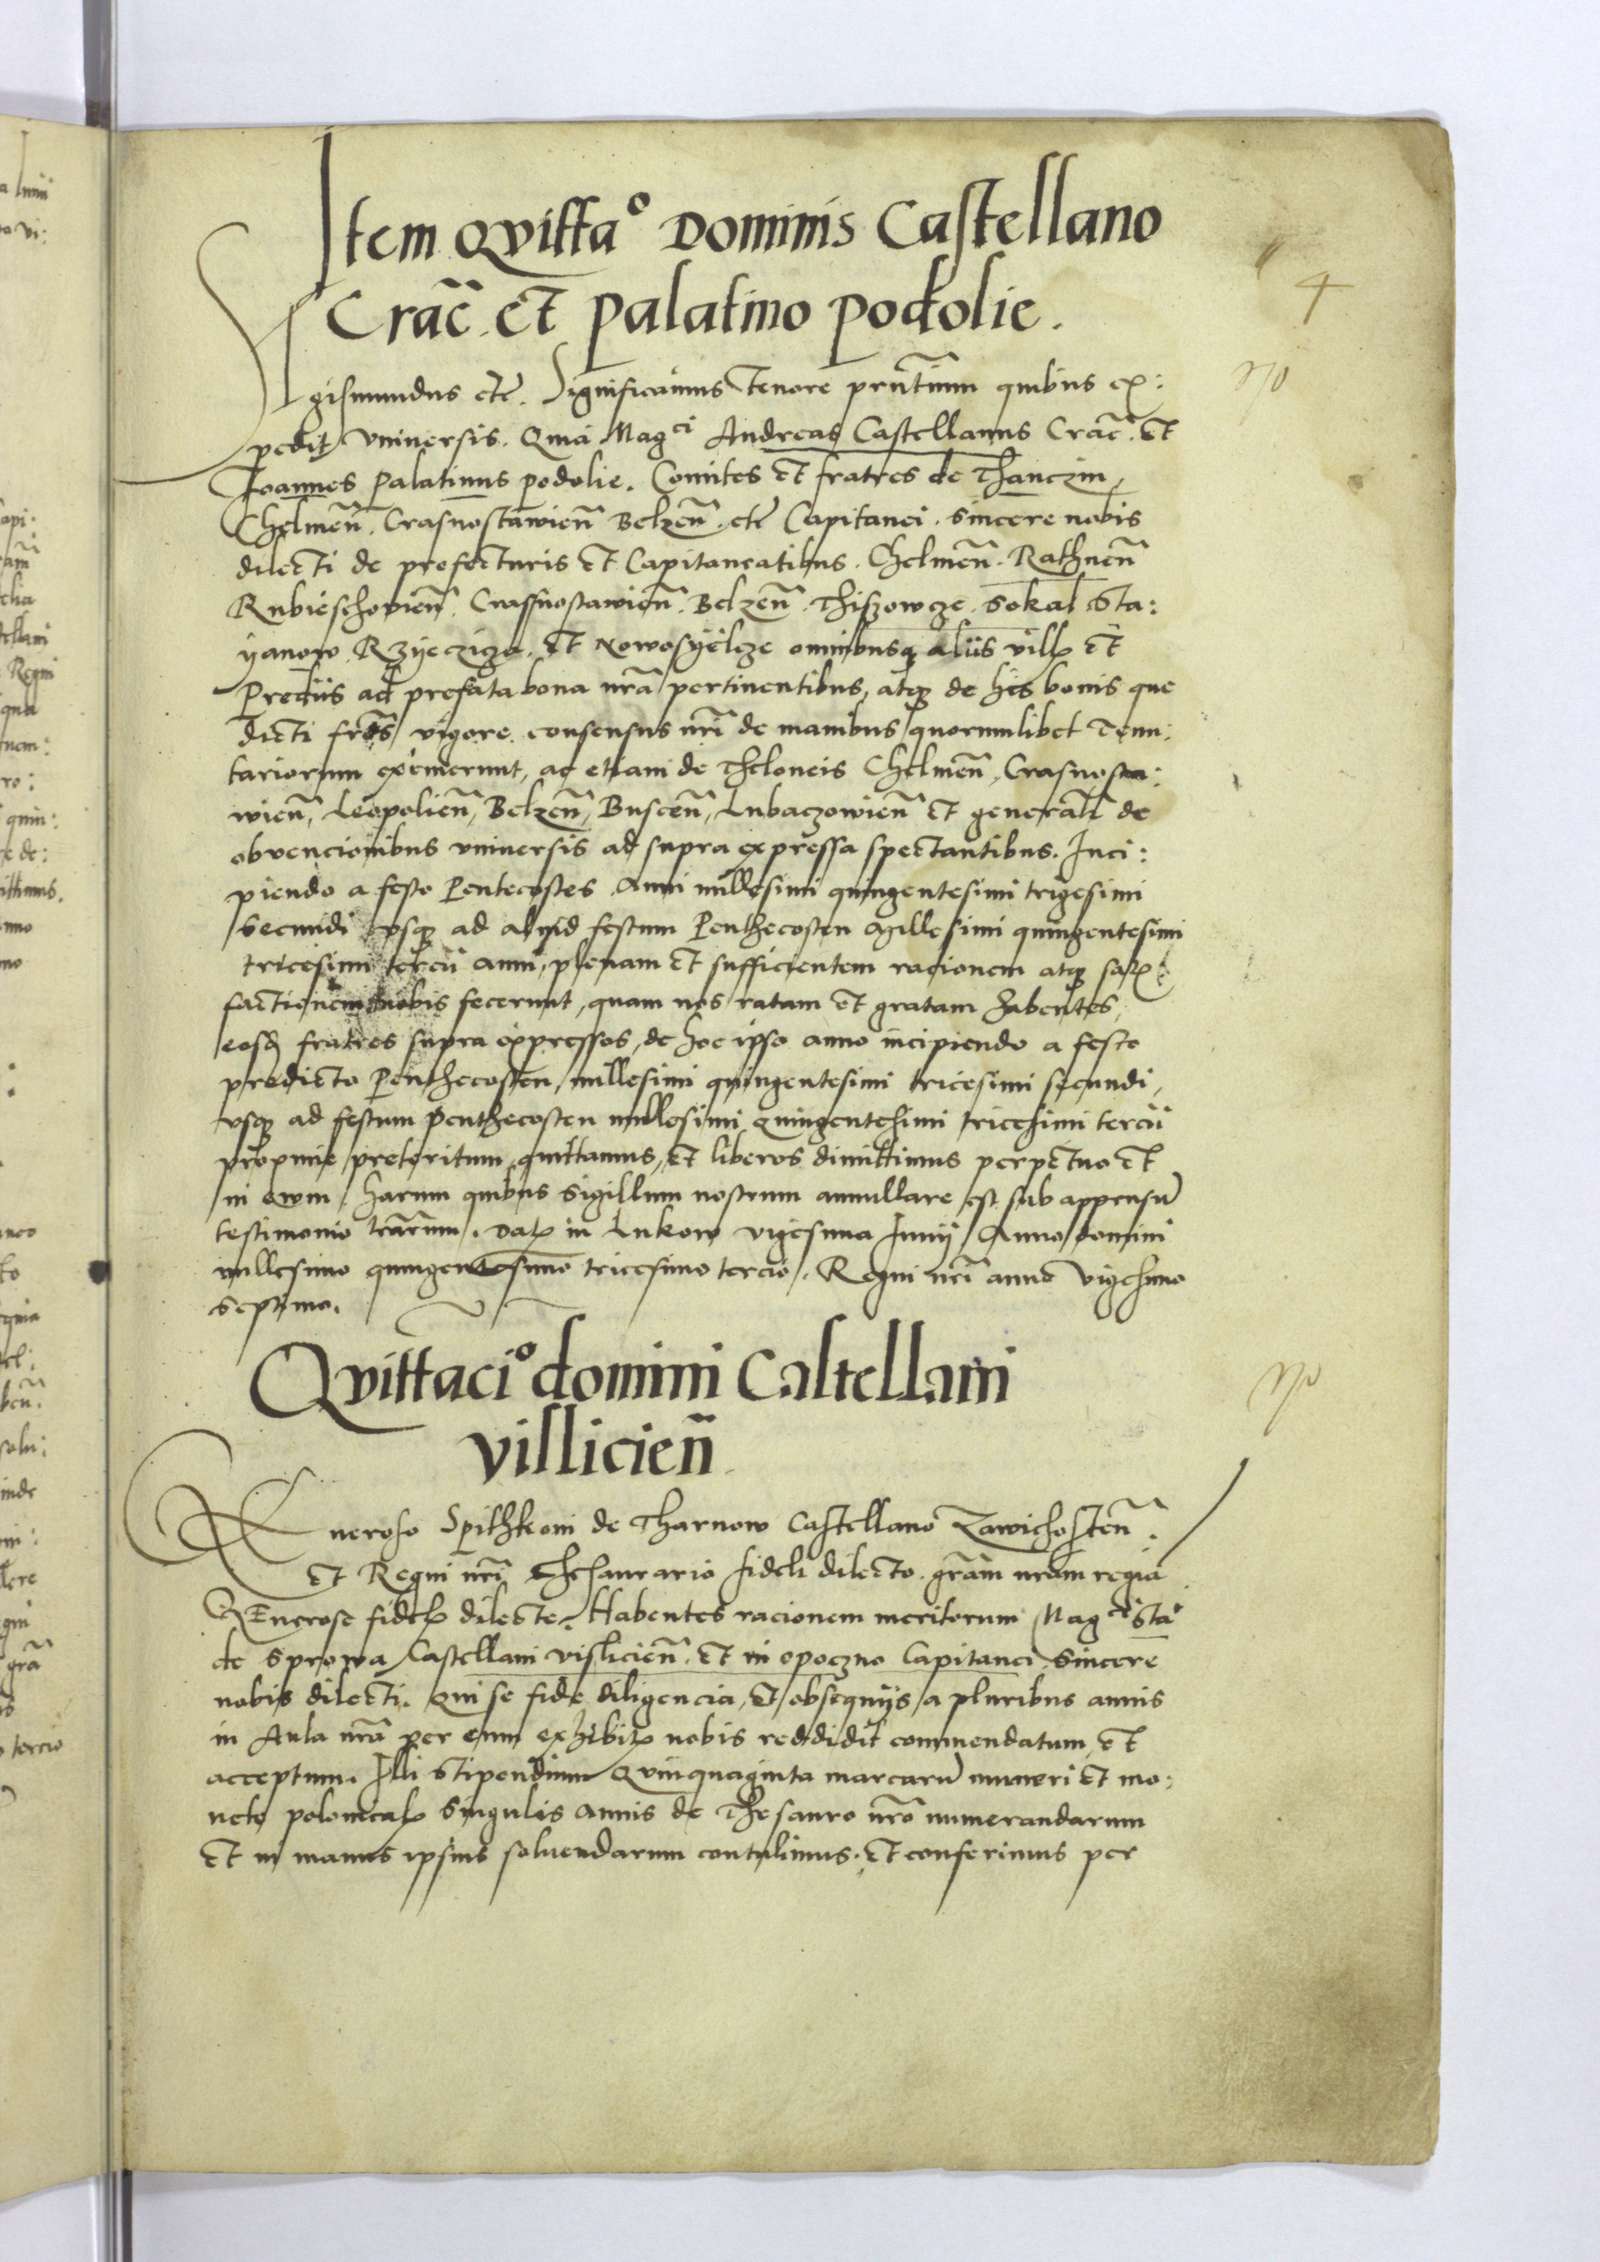 Item Qvitta° Dominis Castellano
Crac̄. et palatino podolie.
4
Sigismundus etc̄. Significamus Tenore prn̄tium quibus ex:
pedit vniuersis. Quia Mag^ci Andreas Castellanus Crac̄. et
Joannes palatinus podolie. Comites et fratres de Thanczin
Chelmen̄. Crasnostawien̄ Belzen̄. etc̄ Capitanei. sincere nobis
dilecti de prefecturis et Capitaneatibus. Chelmen̄. Rathnen̄
Rubieschovien̄. Crassnostawien̄. Belzen̄. Thiszowcze. sokal sta:
yanow. Rzyeczicza. et Nowosyelcze omnibusq aliis vill et
Prediis ad prefata bona nr̄a pertinentibus, atq de his bonis que
dicti fr̄es vigore consensus nr̄i de manibus quorumlibet Tenu:
tariorum exemerunt, ac etiam de Theloneis Chelmen̄, Crasnosta:
wien̄, Leopolien̄, Belzen̄, Buscen̄, Lubaczowien̄ et general̄ de
obvencionibus vniuersis ad supra expressa spectantibus. Inci:
piendo a festo Pentecostes Anni millesimi quingentesimi trigesimi
secundi vsq ad aliud festum Penthecosten Millesimi quingentesimi
tricesimi tercii anni, plenam et sufficientem racionem atq satis
factionem nobis fecerunt, quam nos ratam et gratam habentes,
eosd̄ fratres supra expressos, de hoc ipso anno incipiendo a festo
predicto Penthecosten millesimi quingentesimi tricesimi secundi,
vsq ad festum Penthecosten millesimi quingentesimi tricesimi tercii
proxime preteritum quittamus, et liberos dimittimus perpetuo et
in evum. harum quibus sigillum nostrum annullare est sub appensum̄
testimonio lr̄arum. Dat in Lukow vigesima Junij Anno domini
millesimo quingentesimo tricesimo tercio. Regni nr̄i anno vigesimo
septimo.
Qvittaci° domini Castellani
vislicien̄
Generoso Spithkoni de Tharnow Castellano Zawichosten̄.
et Regni nr̄i Thesaurario fideli dilecto. gr̄am nr̄am regiā
GEnerose fidel dilecte. Habentes racionem meritorum Mag^ci Sta^i
de Sprowa Castellani vislicien̄. et in opoczno Capitanei. sincere
nobis dilecti. qui se fide diligencia, et obsequijs a pluribus annis
in Aula nr̄a per eum exhibit nobis reddidit commendatum, et
acceptum. Illi stipendium Quinquaginta marcarum̄ numeri et mo:
nete polonical Singulis annis de Thesauro nr̄o numerandarum
et in manus ipsius soluendarum contulimus. et conferimus per